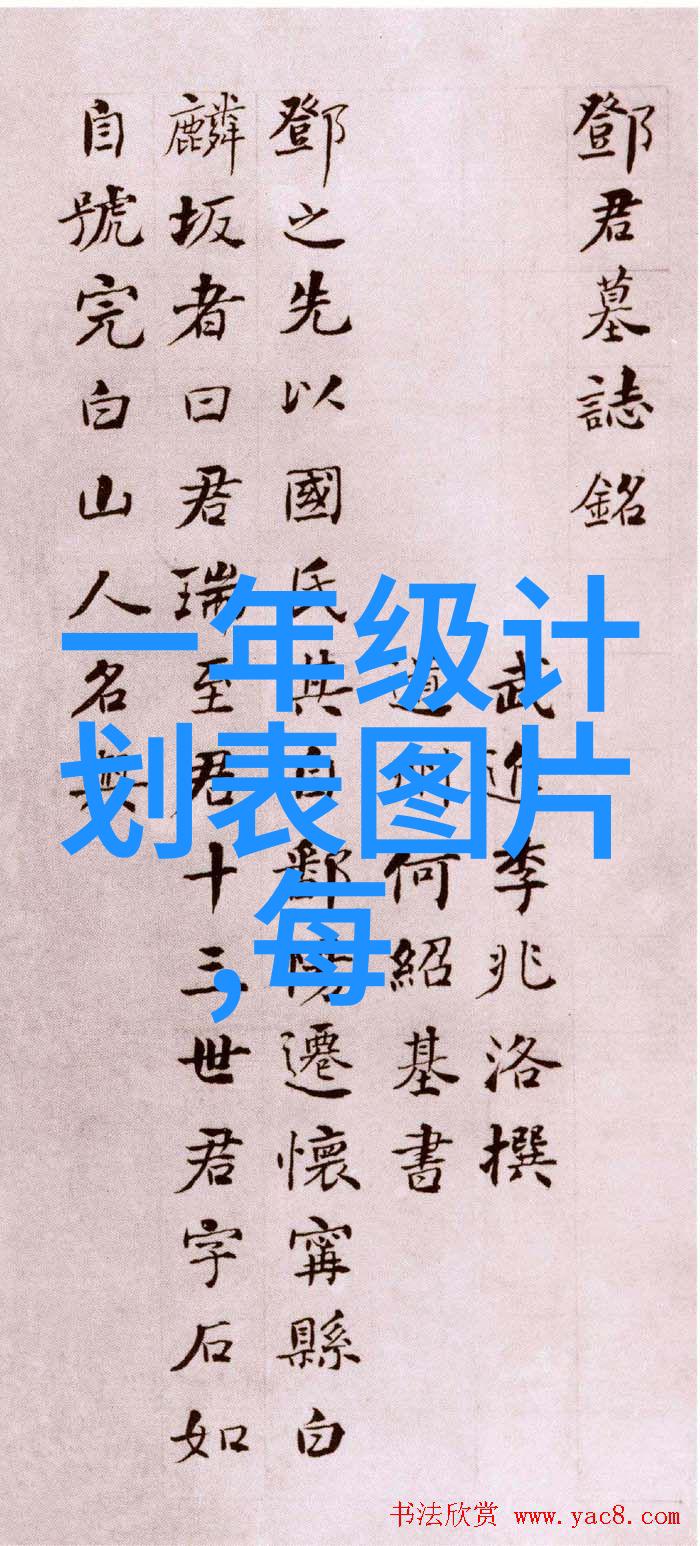 鄧君墓誌銘
武進李兆洛撰
道州何紹基書
鄧之先以國氏其自鄱陽遷懷寗縣白
麟坂者曰君瑞至君十三世君字石如
自號完白山人名無
一年级计
划表图片
,每
书法欣赏 www.yac8.com